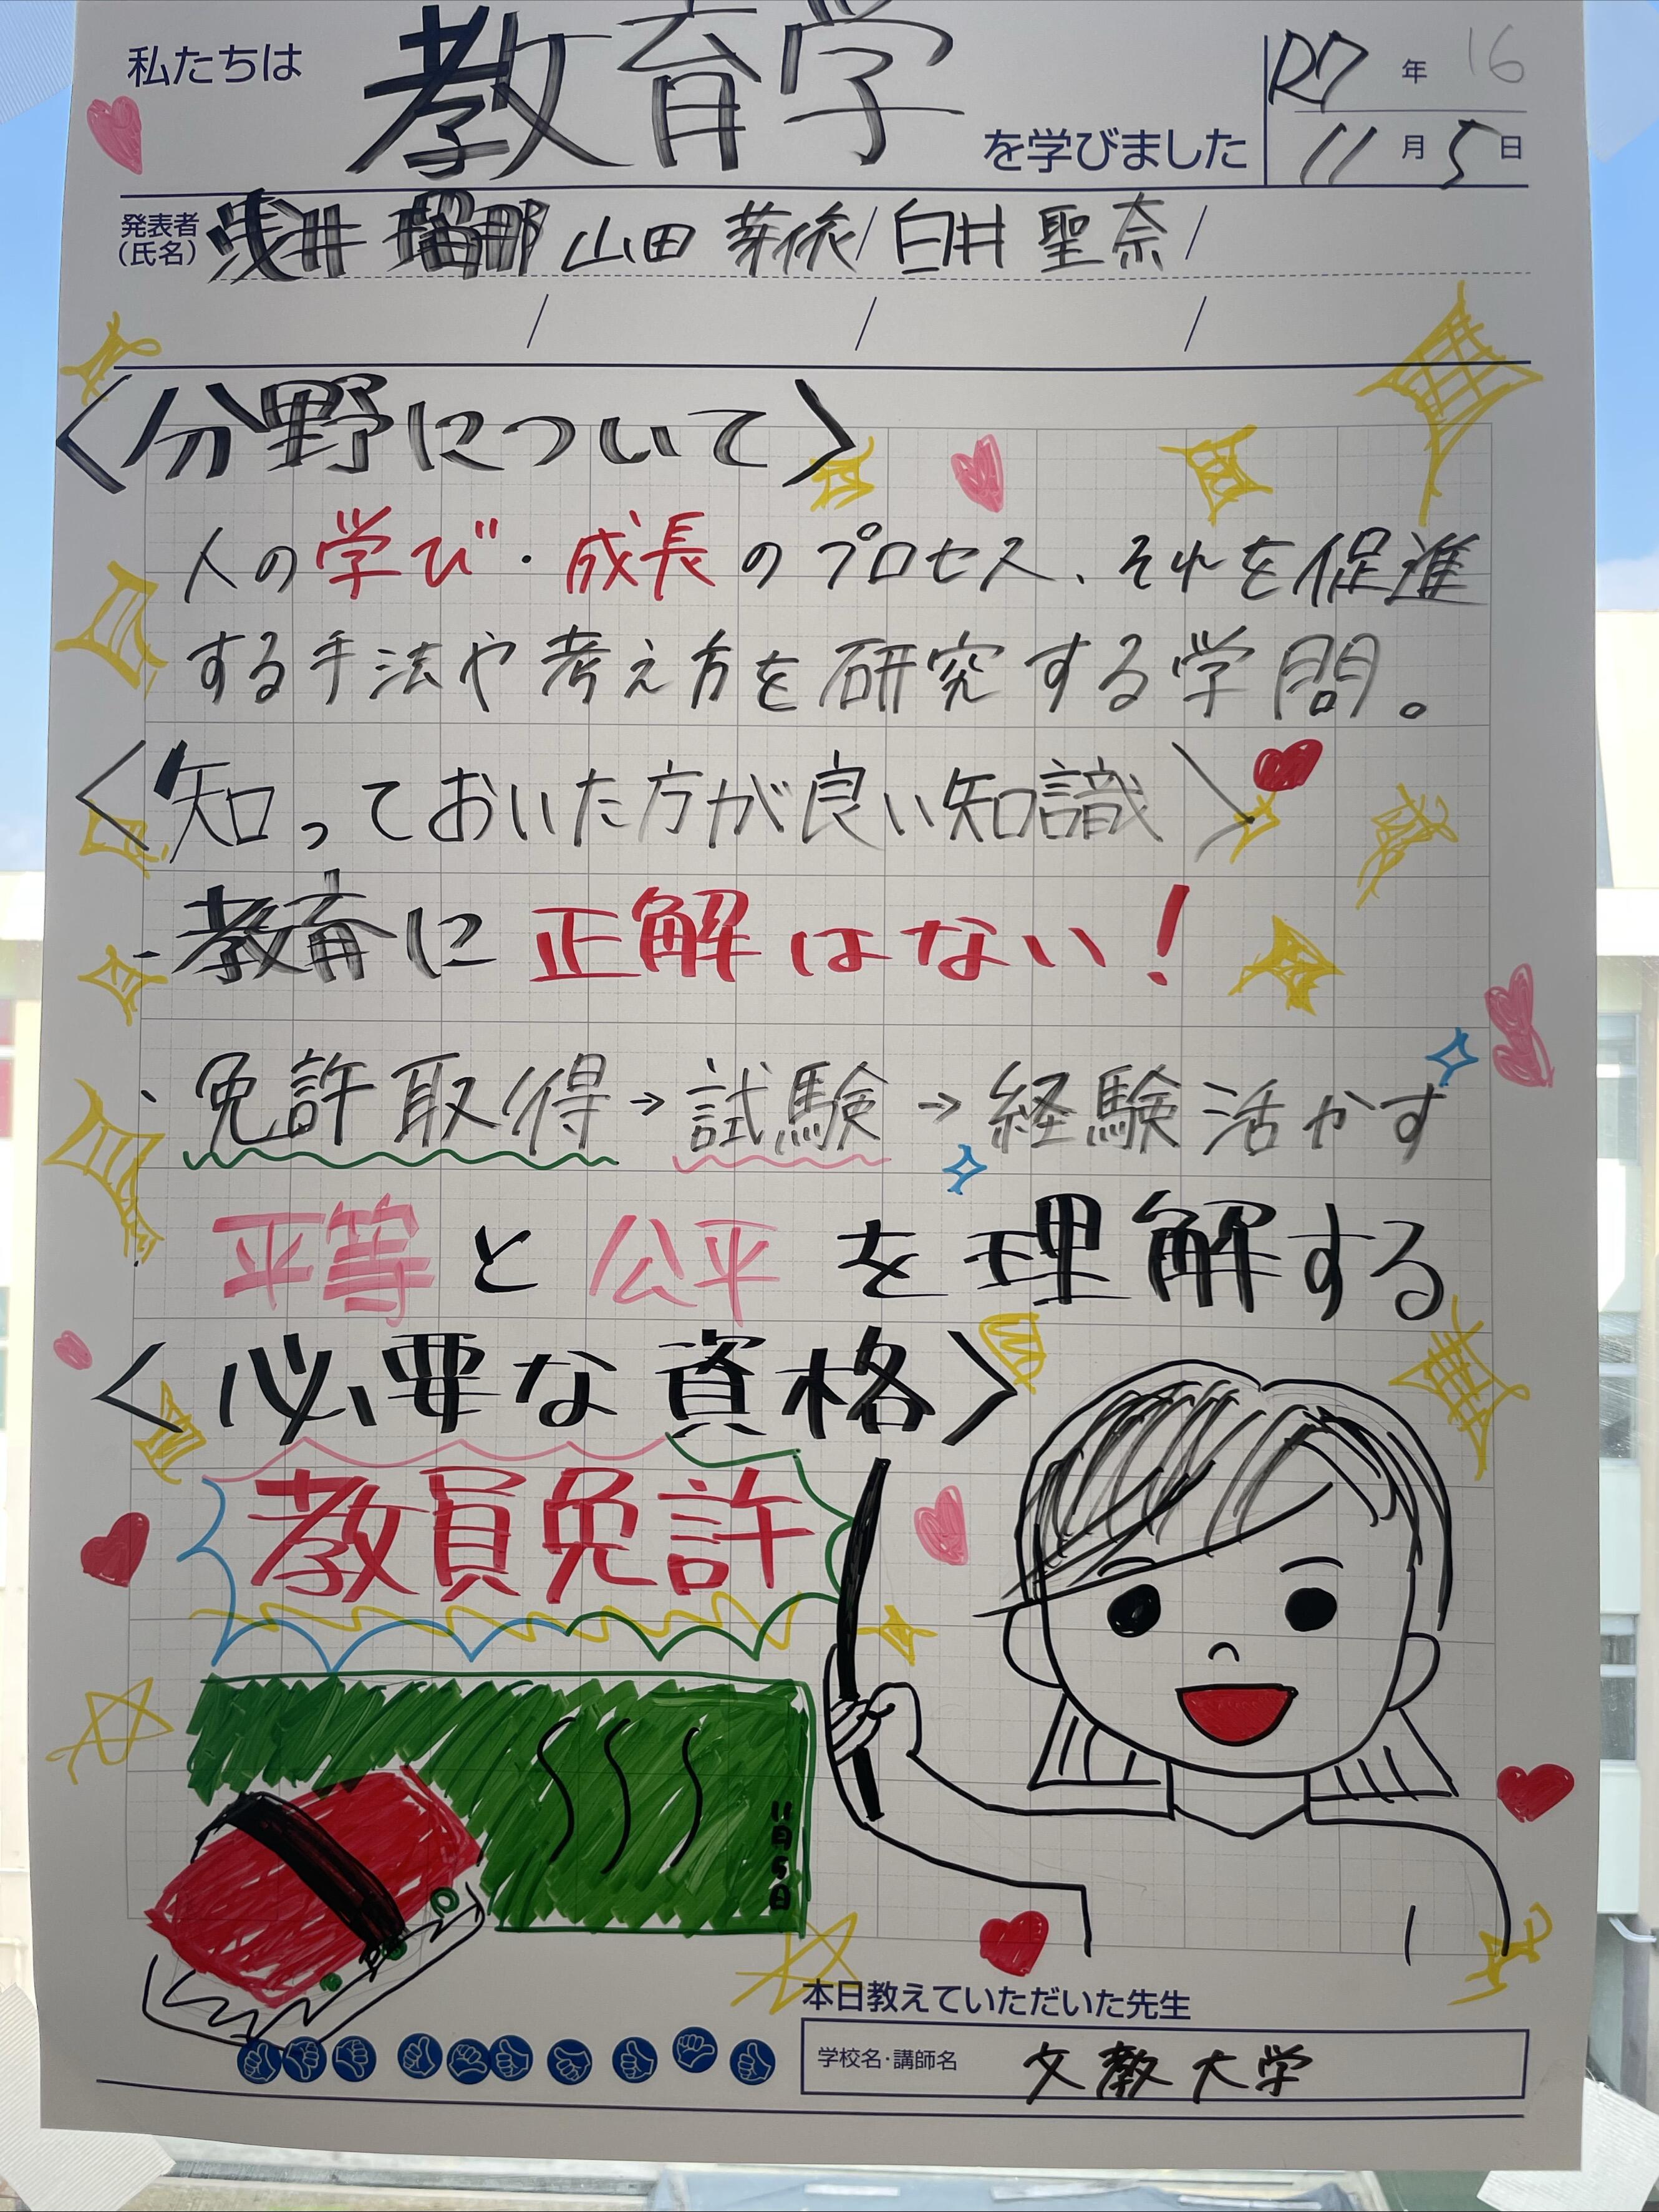 私たちは 教育学 を学びました
R7年 16
11月5日
発表者(氏名) 浅井 瑠那/山田 芽依/白井 聖奈/
/ / /
〈分野について〉
人の学び・成長のプロセス、それを促進
する手法や考え方を研究する学問。
〈知っておいた方が良い知識〉
・教育に正解はない!
・免許取得→試験→経験活かす
・平等と公平を理解する
〈必要な資格〉
教員免許
11月5日
本日教えていただいた先生
学校名・講師名 文教大学